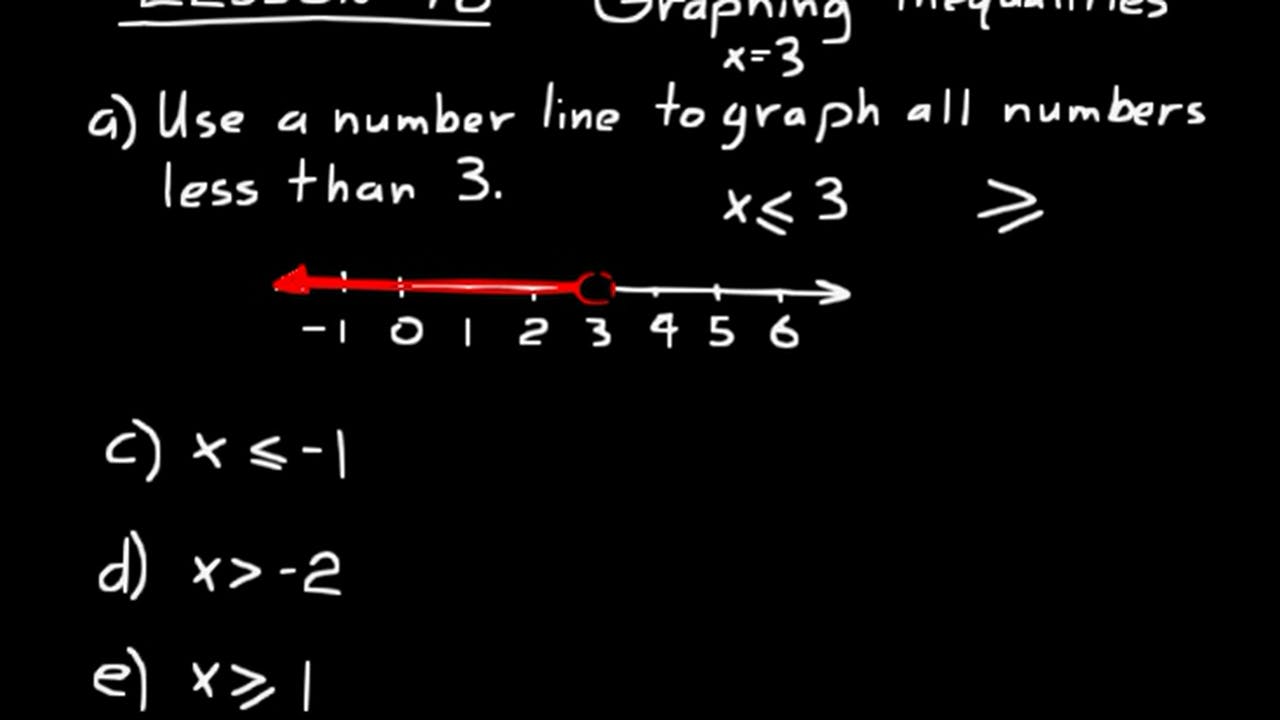 Graphing Inequalities
x=3
a) Use a number line to graph all numbers
less than 3.
x ≤ 3 ≥
-1 0 1 2 3 4 5 6
c) x ≤ -1
d) x > -2
e) x ≥ 1